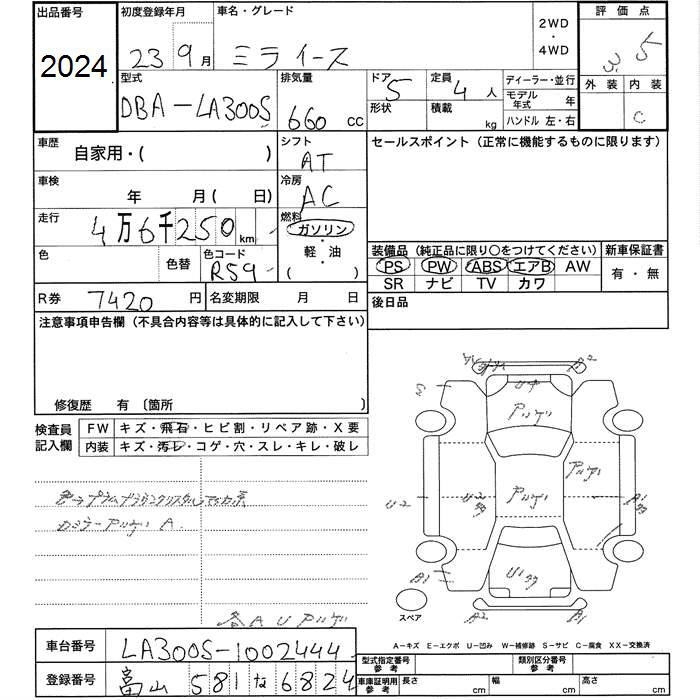 出品番号
2024
初度登録年月
23 9月
車名・グレード
ミライース
2WD
・
4WD
評価点
3.5
外装 内装
C
型式
DBA-LA300S
排気量
660 cc
ドア
5
形状
定員
4人
積載
kg
ディーラー・並行
モデル年式 年
ハンドル 左・右
車歴
自家用・( )
シフト
AT
セールスポイント (正常に機能するものに限ります)
車検
年 月( 日)
冷房
AC
走行
4万6千250km
燃料
ガソリン
・
軽・油
( )
色
色替
色コード
R59
装備品 (純正品に限り○をつけてください)
PS PW ABS エアB AW
SR ナビ TV カワ
新車保証書
有・無
R券 7420円
名変期限 月 日
後日品
注意事項申告欄 (不具合内容等は具体的に記入して下さい)
修復歴 有 〔箇所 〕
検査員記入欄
FW キズ・飛石・ヒビ割・リペア跡・X要
内装 キズ・汚レ・コゲ・穴・スレ・キレ・破レ
A2
S
Uチ
アリゲ
アリゲ
アリゲ
U2
A1
B1
A2
B1
スペア
各AUアリゲ
A-キズ E-エクボ U-凹み W-補修跡 S-サビ C-腐食 XX-交換済
車台番号
LA300S-1002444
登録番号
富山 581 な 6824
型式指定番号参考
類別区分番号参考
車庫証明用参考
長さ cm
幅 cm
高さ cm